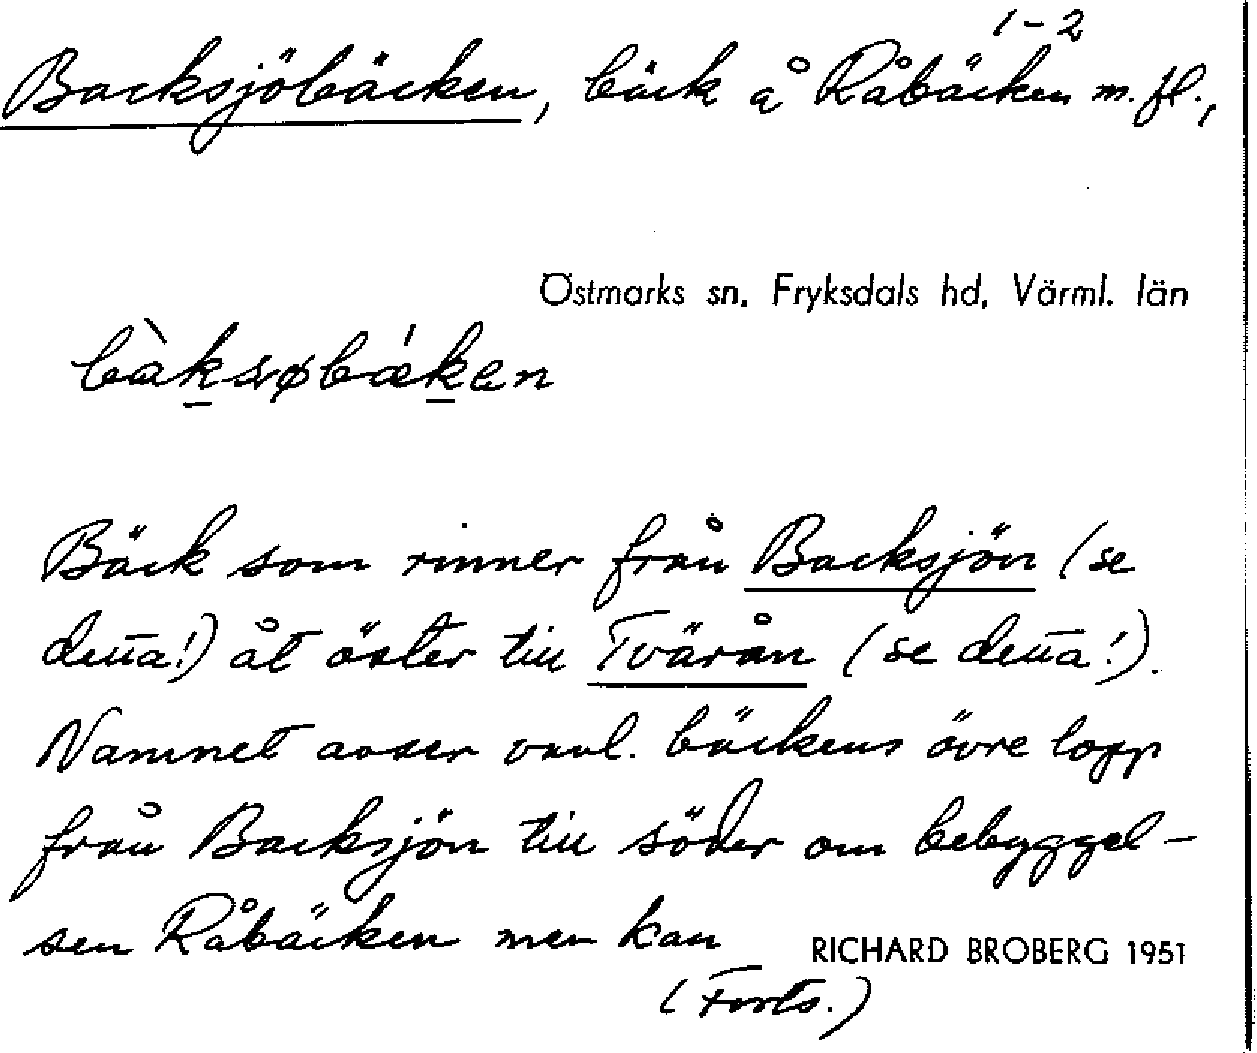 Backsjöbäcken, bäck å Råbäcken 1-2 m.fl.,
Östmarks sn. Fryksdals hd, Värml. län
Bäck som rinner från Backsjön (se
detta!) åt öster till Tvärån (se detta!).
Namnet avser vanl. bäckens övre lopp
från Backsjön till söder om bebyggel-
sen Råbäcken men kan
RICHARD BROBERG 1951
(Forts.)